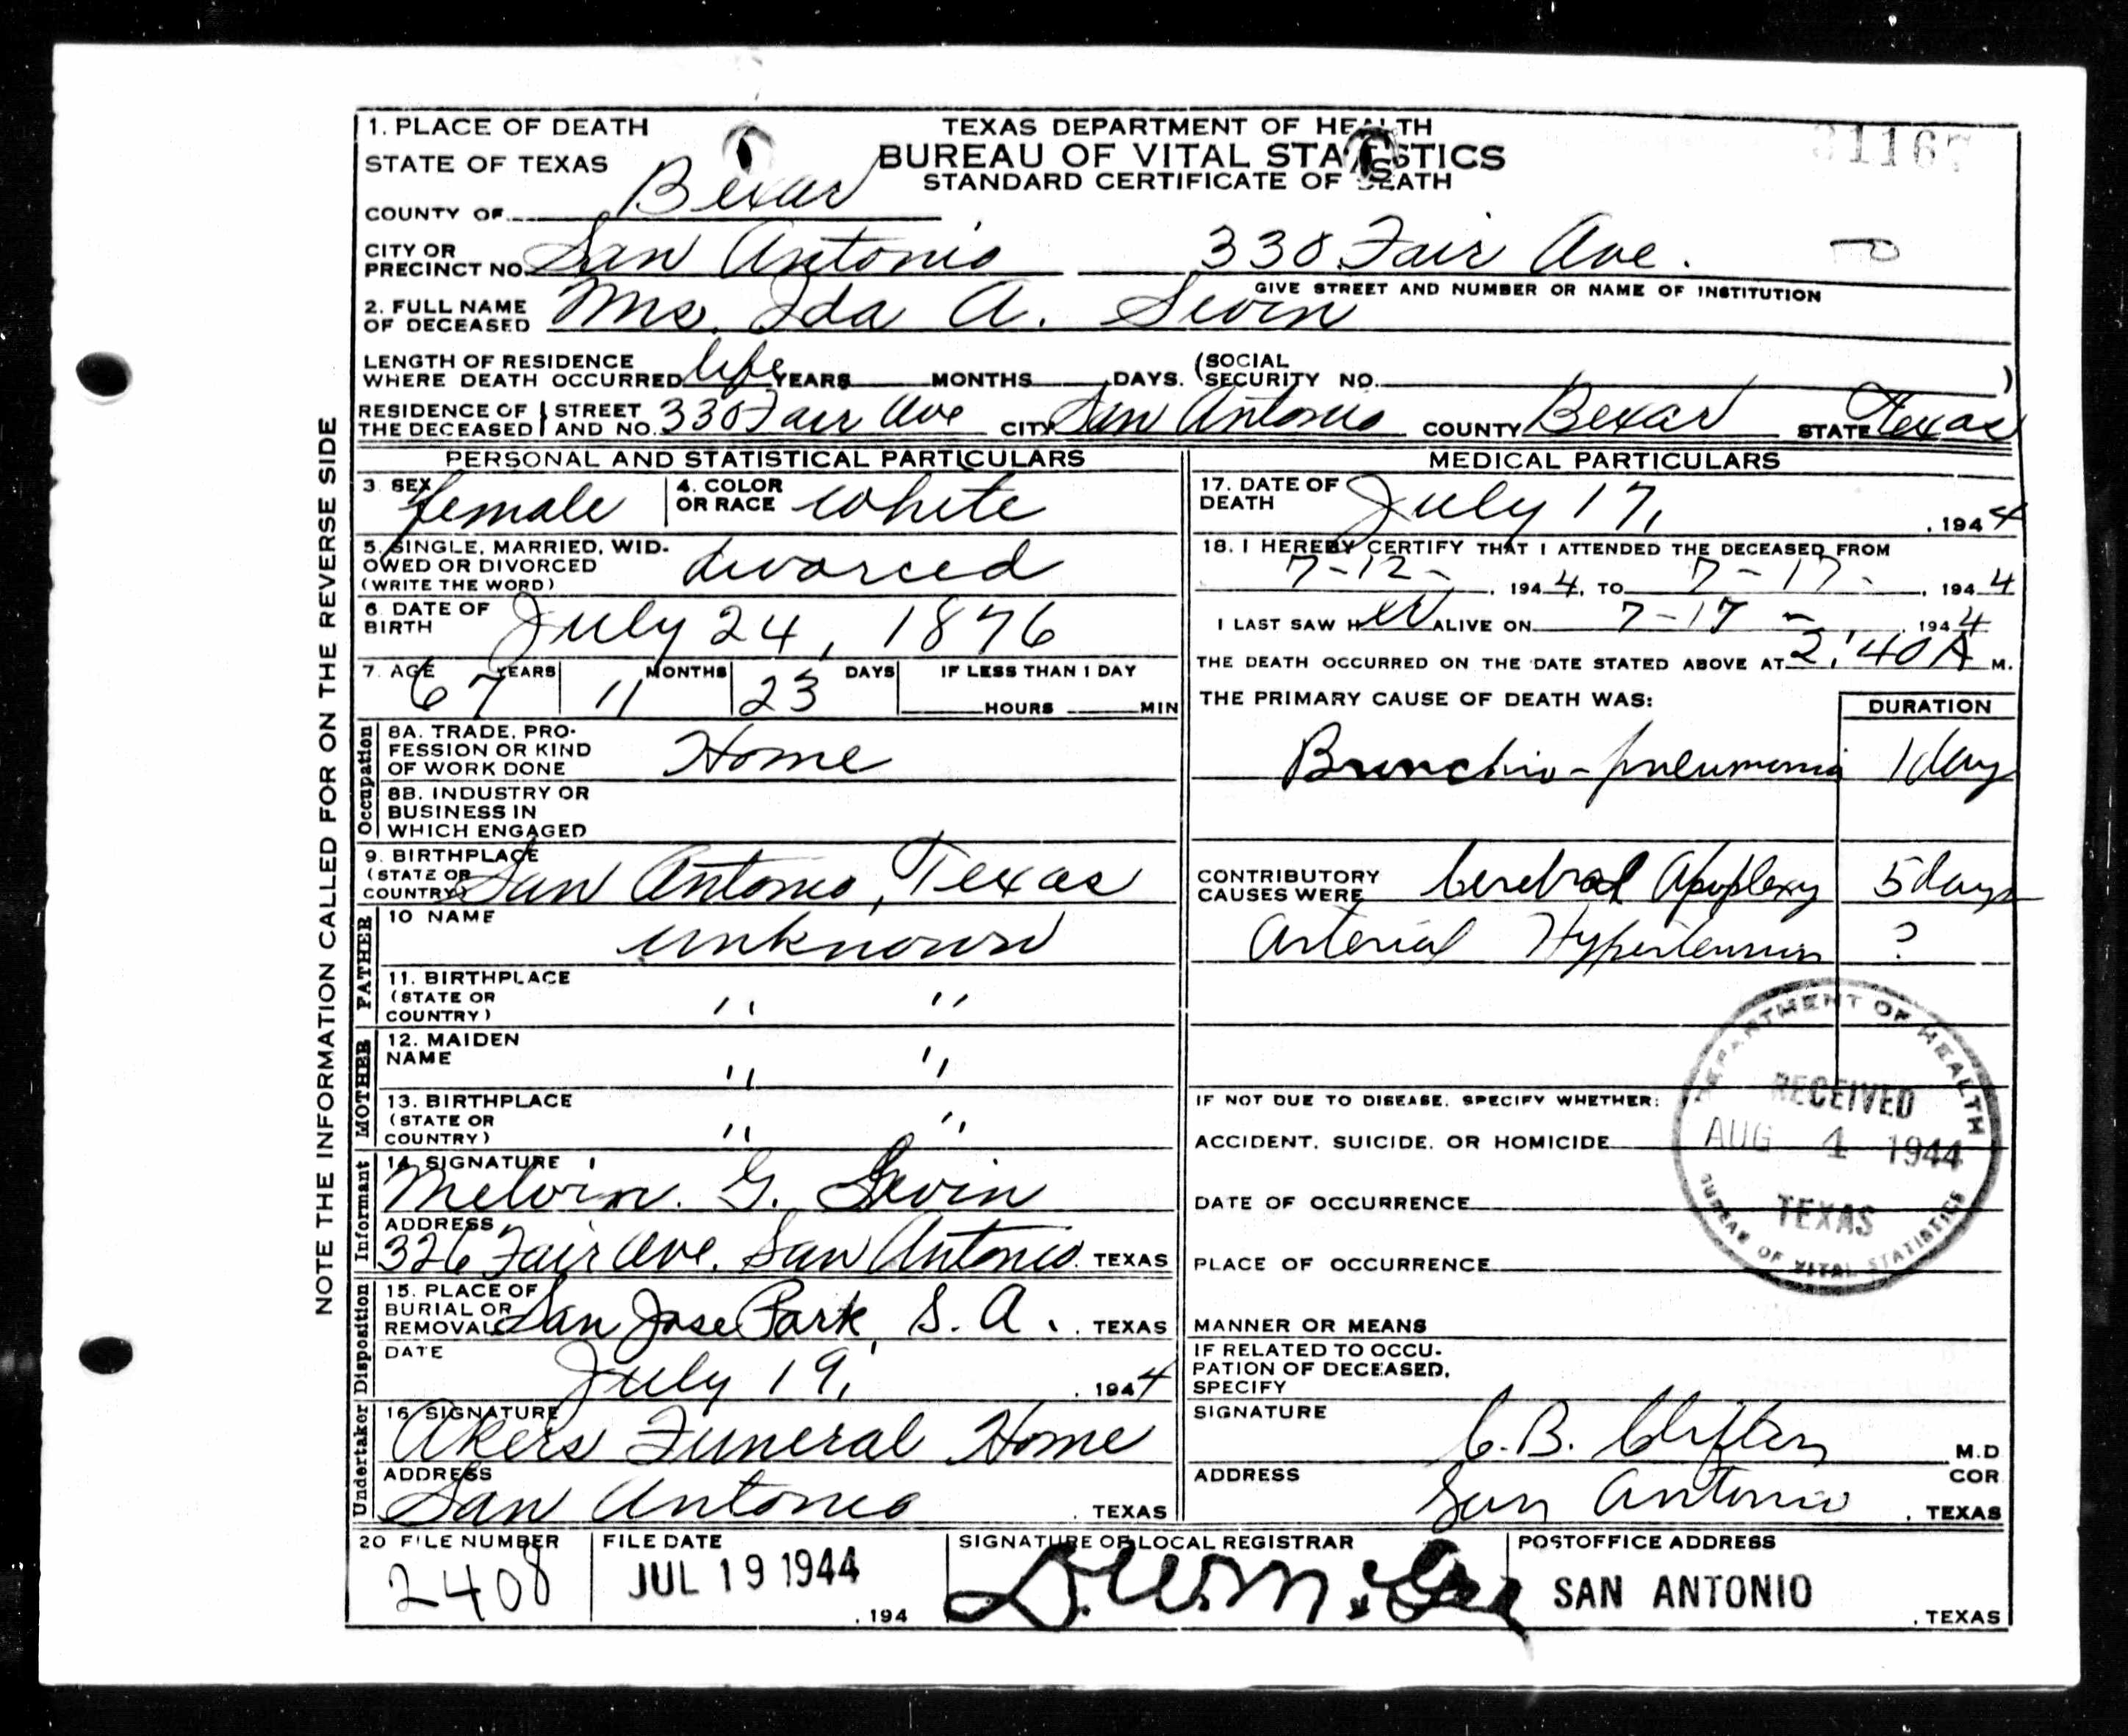 1. PLACE OF DEATH
STATE OF TEXAS
TEXAS DEPARTMENT OF HEALTH
BUREAU OF VITAL STATISTICS
STANDARD CERTIFICATE OF DEATH
COUNTY OF Bexar
CITY OR PRECINCT NO. San Antonio 330 Fair Ave.
GIVE STREET AND NUMBER OR NAME OF INSTITUTION
2. FULL NAME OF DECEASED Mrs. Ida A. Sevin
LENGTH OF RESIDENCE WHERE DEATH OCCURRED life YEARS MONTHS DAYS. (SOCIAL SECURITY NO. )
RESIDENCE OF THE DECEASED STREET AND NO. 330 Fair Ave CITY San Antonio COUNTY Bexar STATE Texas
NOTE THE INFORMATION CALLED FOR ON THE REVERSE SIDE
PERSONAL AND STATISTICAL PARTICULARS
3. SEX female 4. COLOR OR RACE white
5. SINGLE, MARRIED, WIDOWED OR DIVORCED (WRITE THE WORD) divorced
6. DATE OF BIRTH July 24, 1876
7. AGE 67 YEARS 11 MONTHS 23 DAYS IF LESS THAN 1 DAY HOURS MIN
Occupation
8A. TRADE, PROFESSION OR KIND OF WORK DONE Home
8B. INDUSTRY OR BUSINESS IN WHICH ENGAGED
9. BIRTHPLACE (STATE OR COUNTRY) San Antonio, Texas
FATHER
10 NAME unknown
11. BIRTHPLACE (STATE OR COUNTRY) " "
MOTHER
12. MAIDEN NAME " "
13. BIRTHPLACE (STATE OR COUNTRY) " "
Informant
14. SIGNATURE Melvin. G. Sevin
ADDRESS 326 Fair Ave. San Antonio. TEXAS
Disposition
15. PLACE OF BURIAL OR REMOVAL San Jose Park, S. A. . TEXAS
DATE July 19, . 1944
Undertaker
16. SIGNATURE Akers Funeral Home
ADDRESS San Antonio . TEXAS
MEDICAL PARTICULARS
17. DATE OF DEATH July 17, . 1944
18. I HEREBY CERTIFY THAT I ATTENDED THE DECEASED FROM
7-12- , 1944, TO 7-17- , 1944
I LAST SAW HER ALIVE ON 7-17- , 1944
THE DEATH OCCURRED ON THE DATE STATED ABOVE AT 2:40 A M.
THE PRIMARY CAUSE OF DEATH WAS: DURATION
Bronchio-pneumonia 1 day
CONTRIBUTORY CAUSES WERE Cerebral Apoplexy 5 days
Arterial Hypertension ?
IF NOT DUE TO DISEASE, SPECIFY WHETHER:
ACCIDENT, SUICIDE, OR HOMICIDE
DATE OF OCCURRENCE
PLACE OF OCCURRENCE
MANNER OR MEANS
IF RELATED TO OCCUPATION OF DECEASED, SPECIFY
DEPARTMENT OF HEALTH
RECEIVED
AUG 4 1944
TEXAS
BUREAU OF VITAL STATISTICS
SIGNATURE C. B. Clifton M.D
COR
ADDRESS San Antonio . TEXAS
20 FILE NUMBER 2408
FILE DATE JUL 19 1944 , 194
SIGNATURE OF LOCAL REGISTRAR
POSTOFFICE ADDRESS
SAN ANTONIO . TEXAS